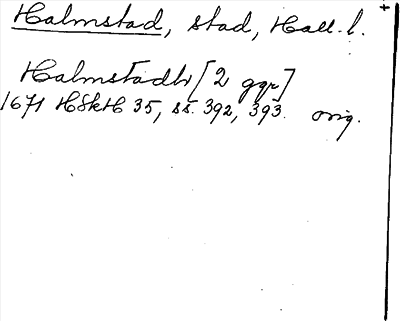 Halmstad, stad, Hall. l.
Halmstadh [2 ggr]
1671 HSkH 35, ss. 392, 393. orig.